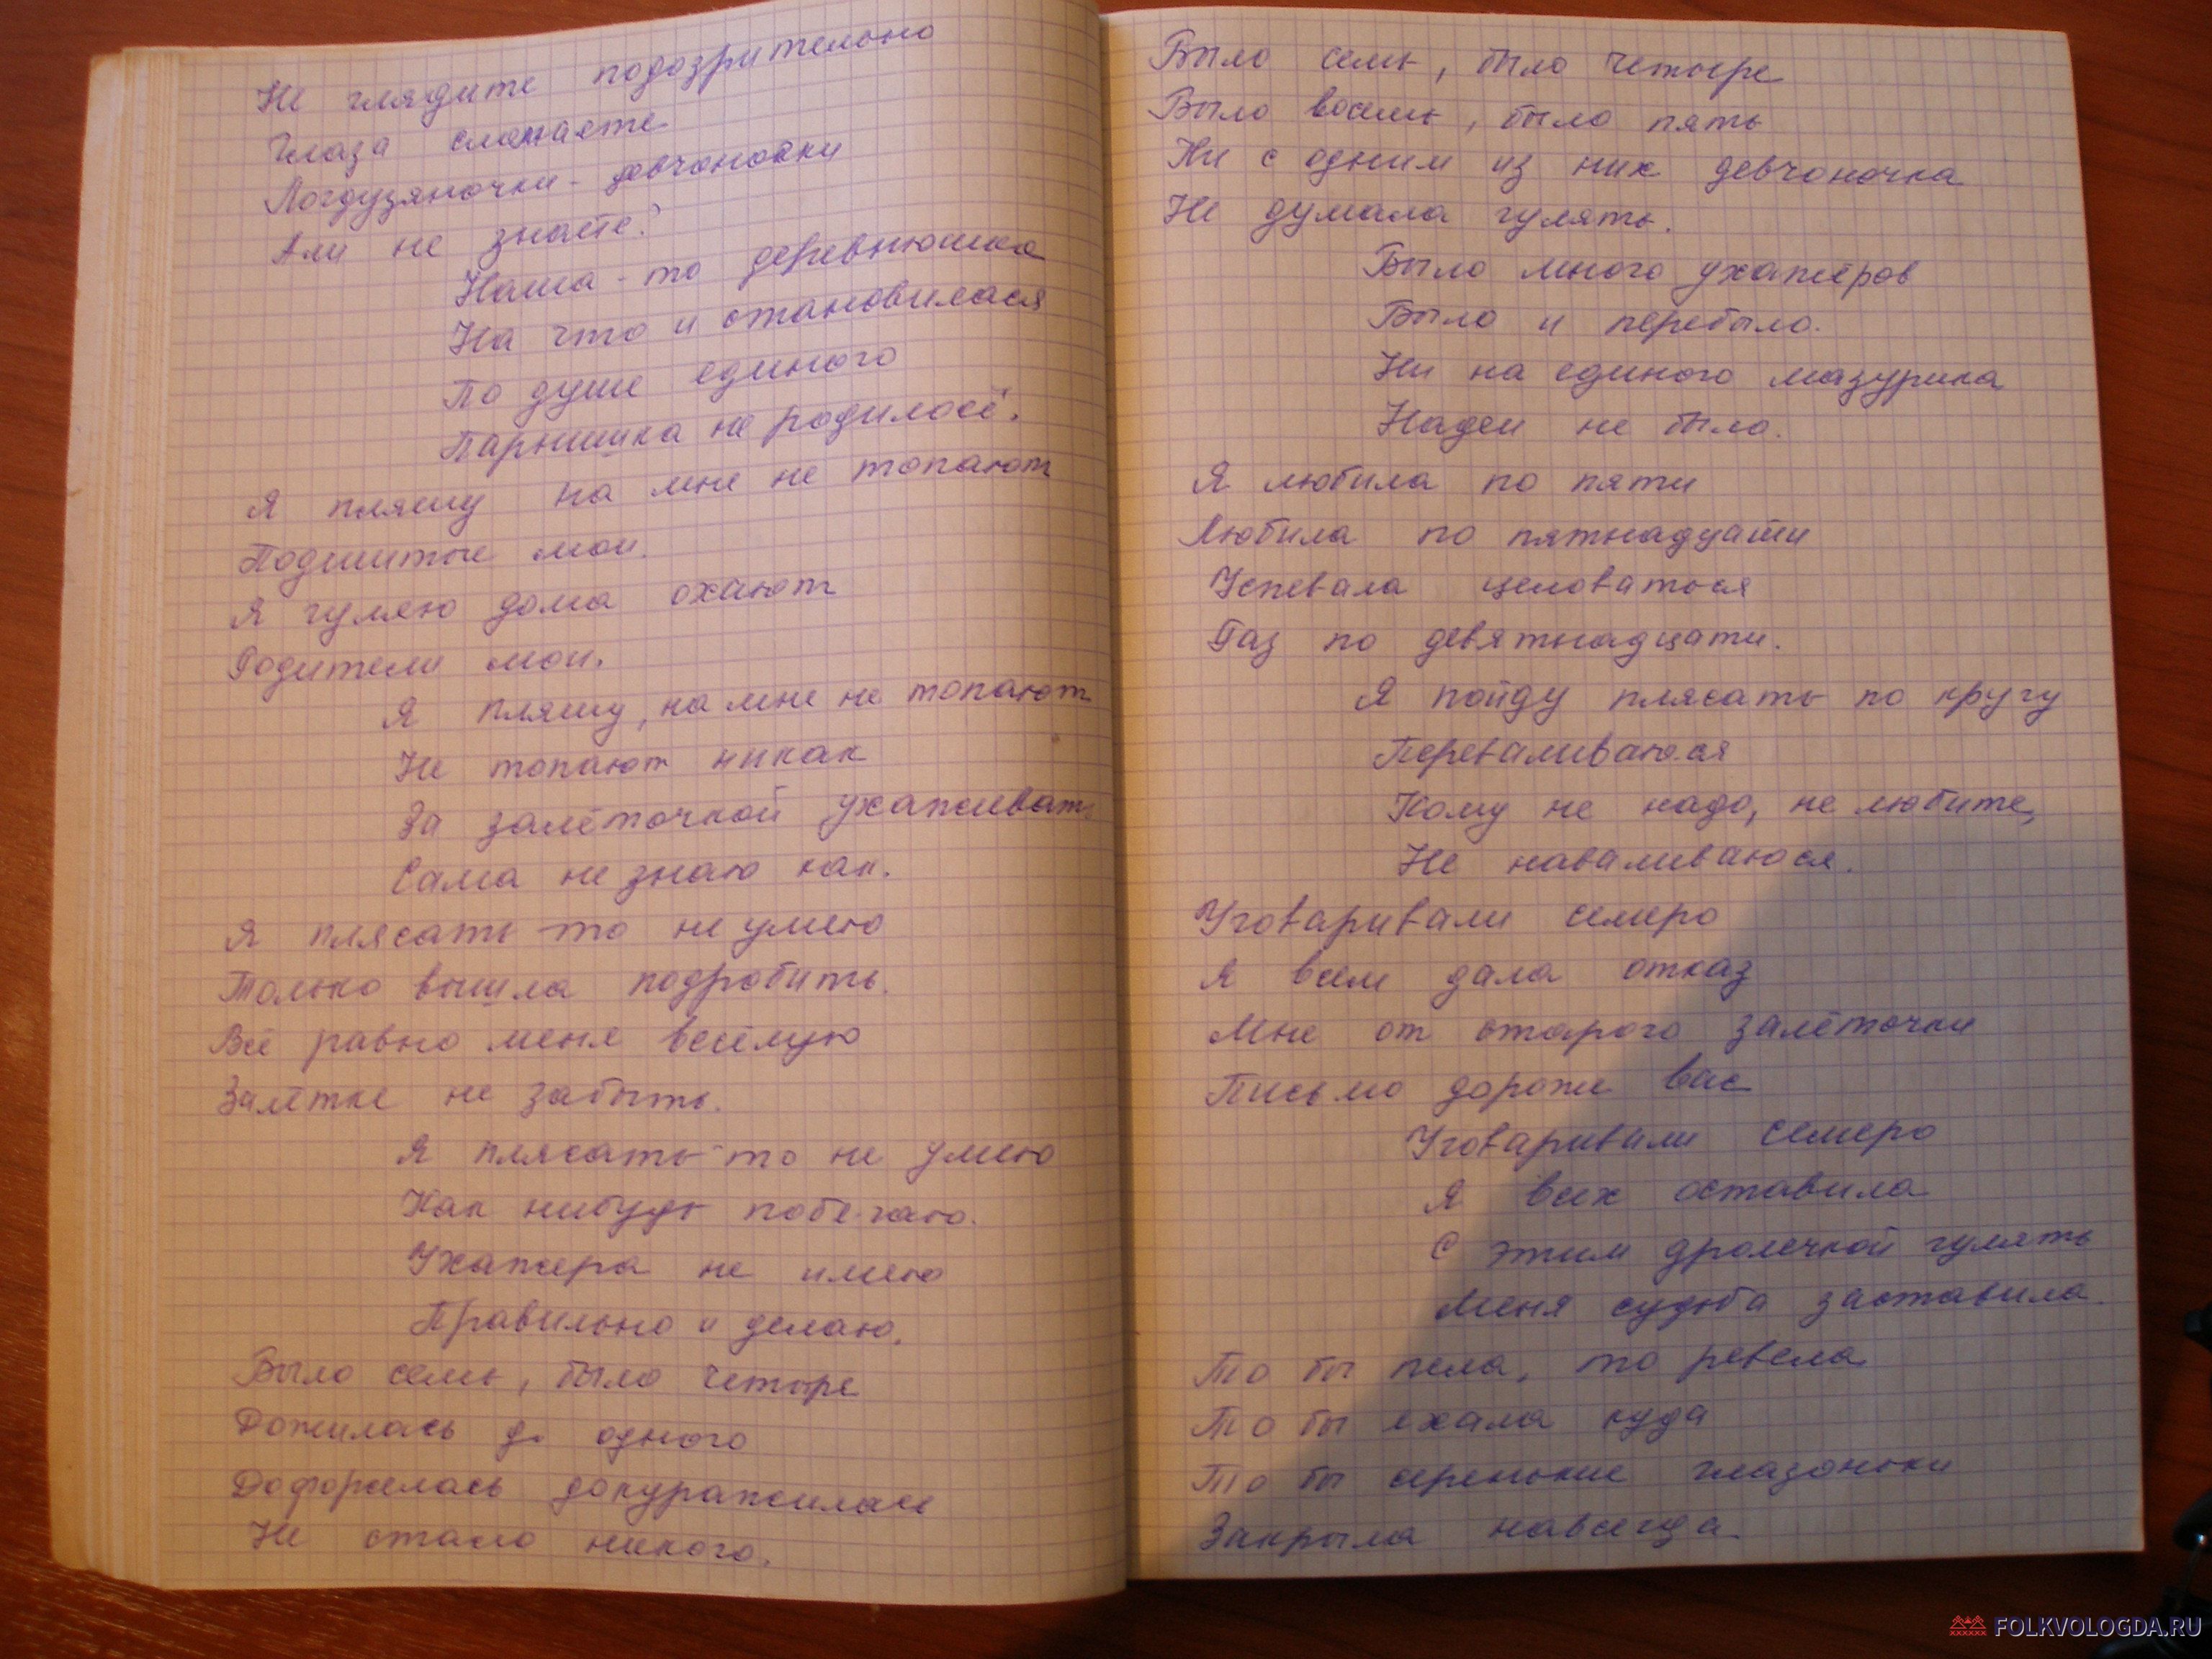 Не глядите подозрительно
Глаза сломаете
Логдузяночки - девчоночки
Али не знаете?
Наша - то деревнюшка
На что и становилася
По душе единого
Парнишка не родилосё.
Я пляшу на мне не топают
Подшитые мои.
Я гуляю дома охают
Родители мои.
Я пляшу, на мне не топают
Не топают никак
За залёточкой ухаживать
Сама не знаю как.
Я плясать - то не умею
Только вышла подробить.
Всё равно меня весёлую
Залётке не забыть.
Я плясать - то не умею
Как нибудь побегаю.
Ухажера не имею
Правильно и делаю.
Было семь, было четыре
Дожилась до одного
Дофорсилась докуражилась
Не стало никого.
Было семь, было четыре
Было восемь, было пять
Ни с одним из них девчоночка
Не думала гулять.
Было много ухажёров
Было и перебыло.
Ни на единого мазурика
Надеи не было.
Я любила по пяти
Любила по пятнадцати
Успевала целоваться
Раз по девятнадцати.
Я пойду плясать по кругу
Переваливаюся
Кому не надо, не любите,
Не наваливаюся.
Уговаривали семеро
Я всем дала отказ
Мне от старого залёточки
Письмо дороже вас
Уговаривали семеро
Я всех оставила
С этим дролечкой гулять
Меня судьба заставила.
То бы пела, то ревела
То бы ехала куда
То бы серенькие глазоньки
Закрыла навсегда.
FOLKVOLOGDA.RU